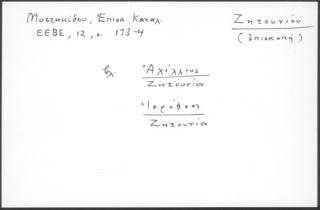 Μυστακίδου, Ἐπισκ. Καταλ.
ΕΕΒΣ, 12, σ. 173-4
Ζητουνίου
(ἐπισκοπή)
βλ. Ἀχίλλιος
Ζητουνίου
Ἱερόθεος
Ζητουνίου